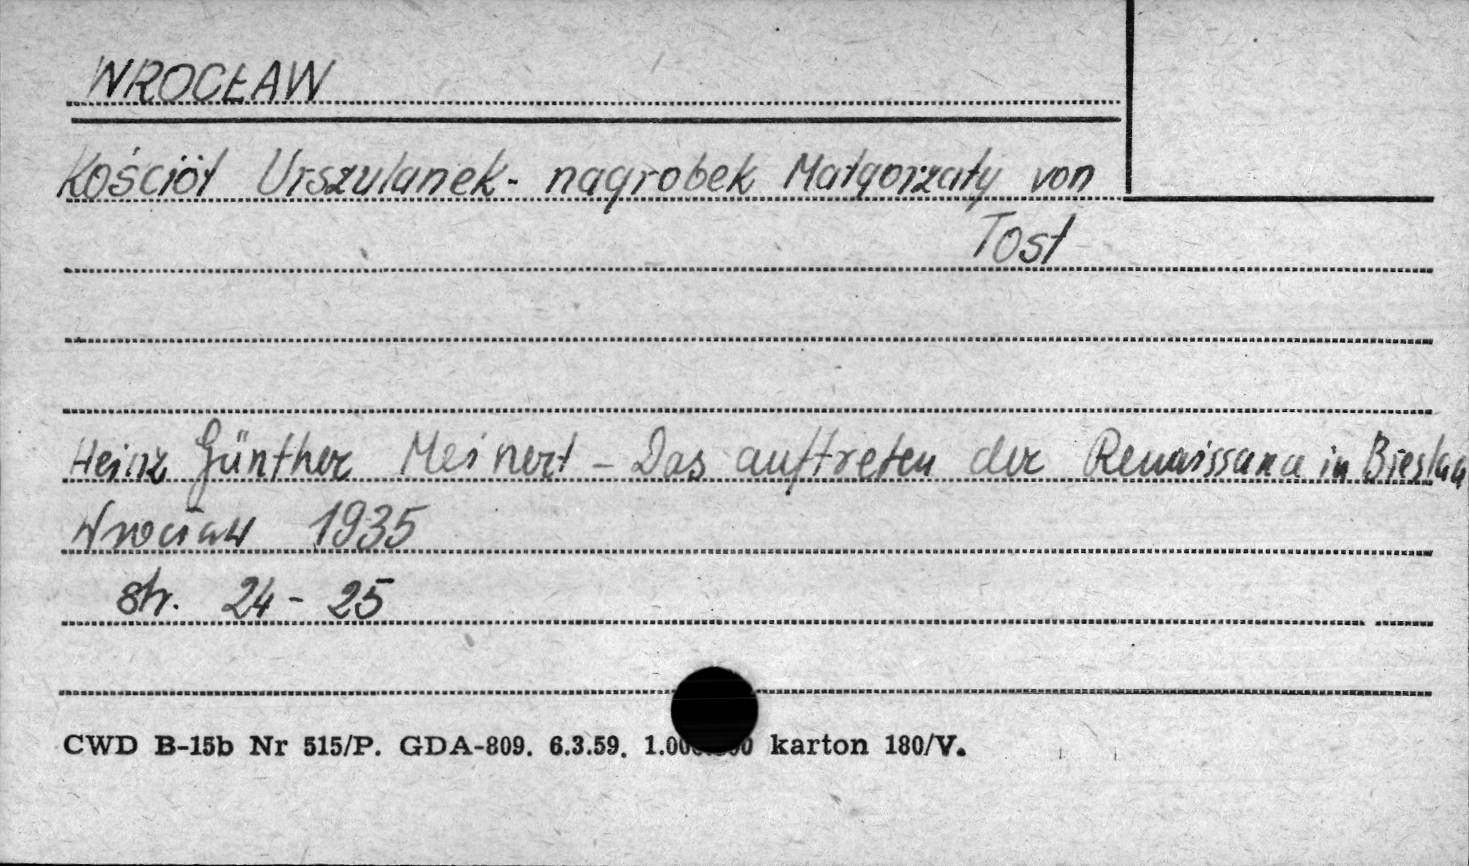 WROCŁAW
Kościół Urszulanek - nagrobek Małgorzaty von
Tost
Heinz Günther Meinert - Das auftreten der Renaissance in Breslau
Wrocław 1935
str. 24 - 25
CWD B-15b Nr 515/P. GDA-809. 6.3.59. karton 180/V.